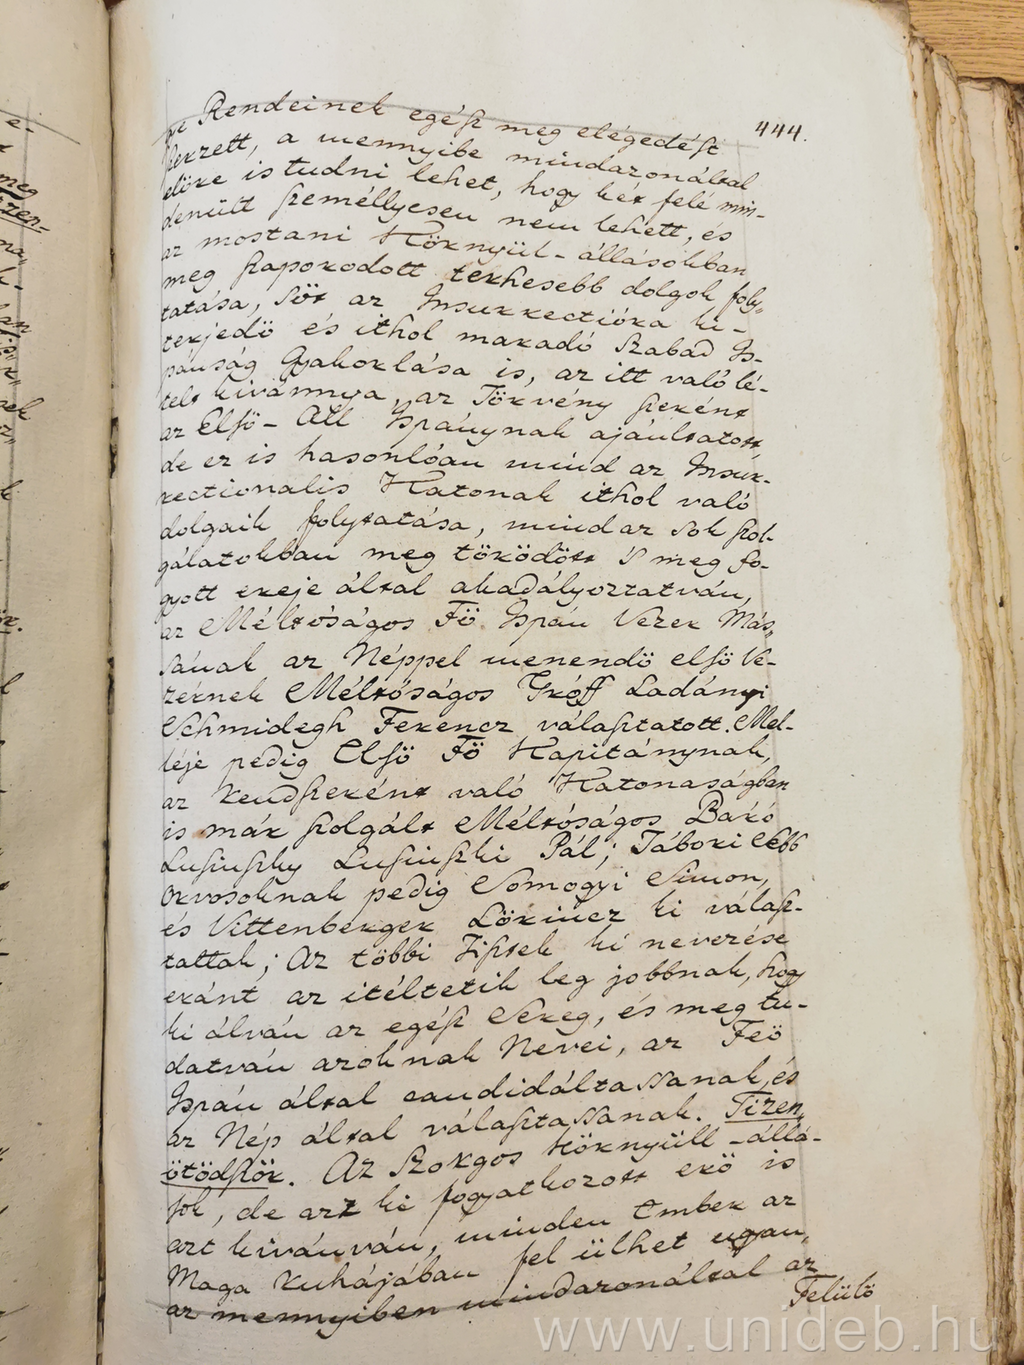 444.
ye Rendeinek egész meg elégedést
szerzett, a mennyibe mindazonáltal
elöre is tudni lehet, hogy két felé min-
denütt személlyesen nem lehett, és
az mostani Környül-állásokban
meg szaporodott terhesebb dolgok foly-
tatása, söt az Insurrectióra ki-
terjedö és ithol maradó Szabad Is-
pánság Gyakorlása is, az itt való lé-
telt kivánnya, az Törvény szerént
az Elsö-All Ispánynak ajánltatott,
de ez is hasonlóan mind az Insur-
rectionalis Katonak ithol való
dolgaik folytatása, mind az sok szol-
gálatokban meg törödött 's meg fo-
gyott ereje által akadályoztatván,
az Méltóságos Fö Ispán Vezér Más-
sának az Néppel menendö elsö Ve-
zérnek Méltóságos Gróff Ladányi
Schmidegh Ferencz választatott. Mel-
léje pedig Elsö Fö Kapitánynak,
az Rendszerént való Katonaságban
is már szolgált Méltóságos Báró
Lusinszky Lusinszki Pál; Tábori Sebb
Orvosoknak pedig Somogyi Simon,
és Vittenberger Lörincz ki válasz-
tattak; Az többi Tisztek ki nevezése
eránt az itéltetik leg jobbnak, hogy
ki álván az egész Sereg, és meg tu-
datván azoknak Nevei, az Feö
Ispán által candidáltassanak, és
az Nép által választassanak. Tizen
ötödször. Az Szorgos Környüll-állá-
sok, de azt ki fogyatkozott erö is
azt kivánván, minden Ember az
Maga Ruhájában fel ülhet ugyan,
az mennyiben mindazonáltal az
Felülö
www.unideb.hu